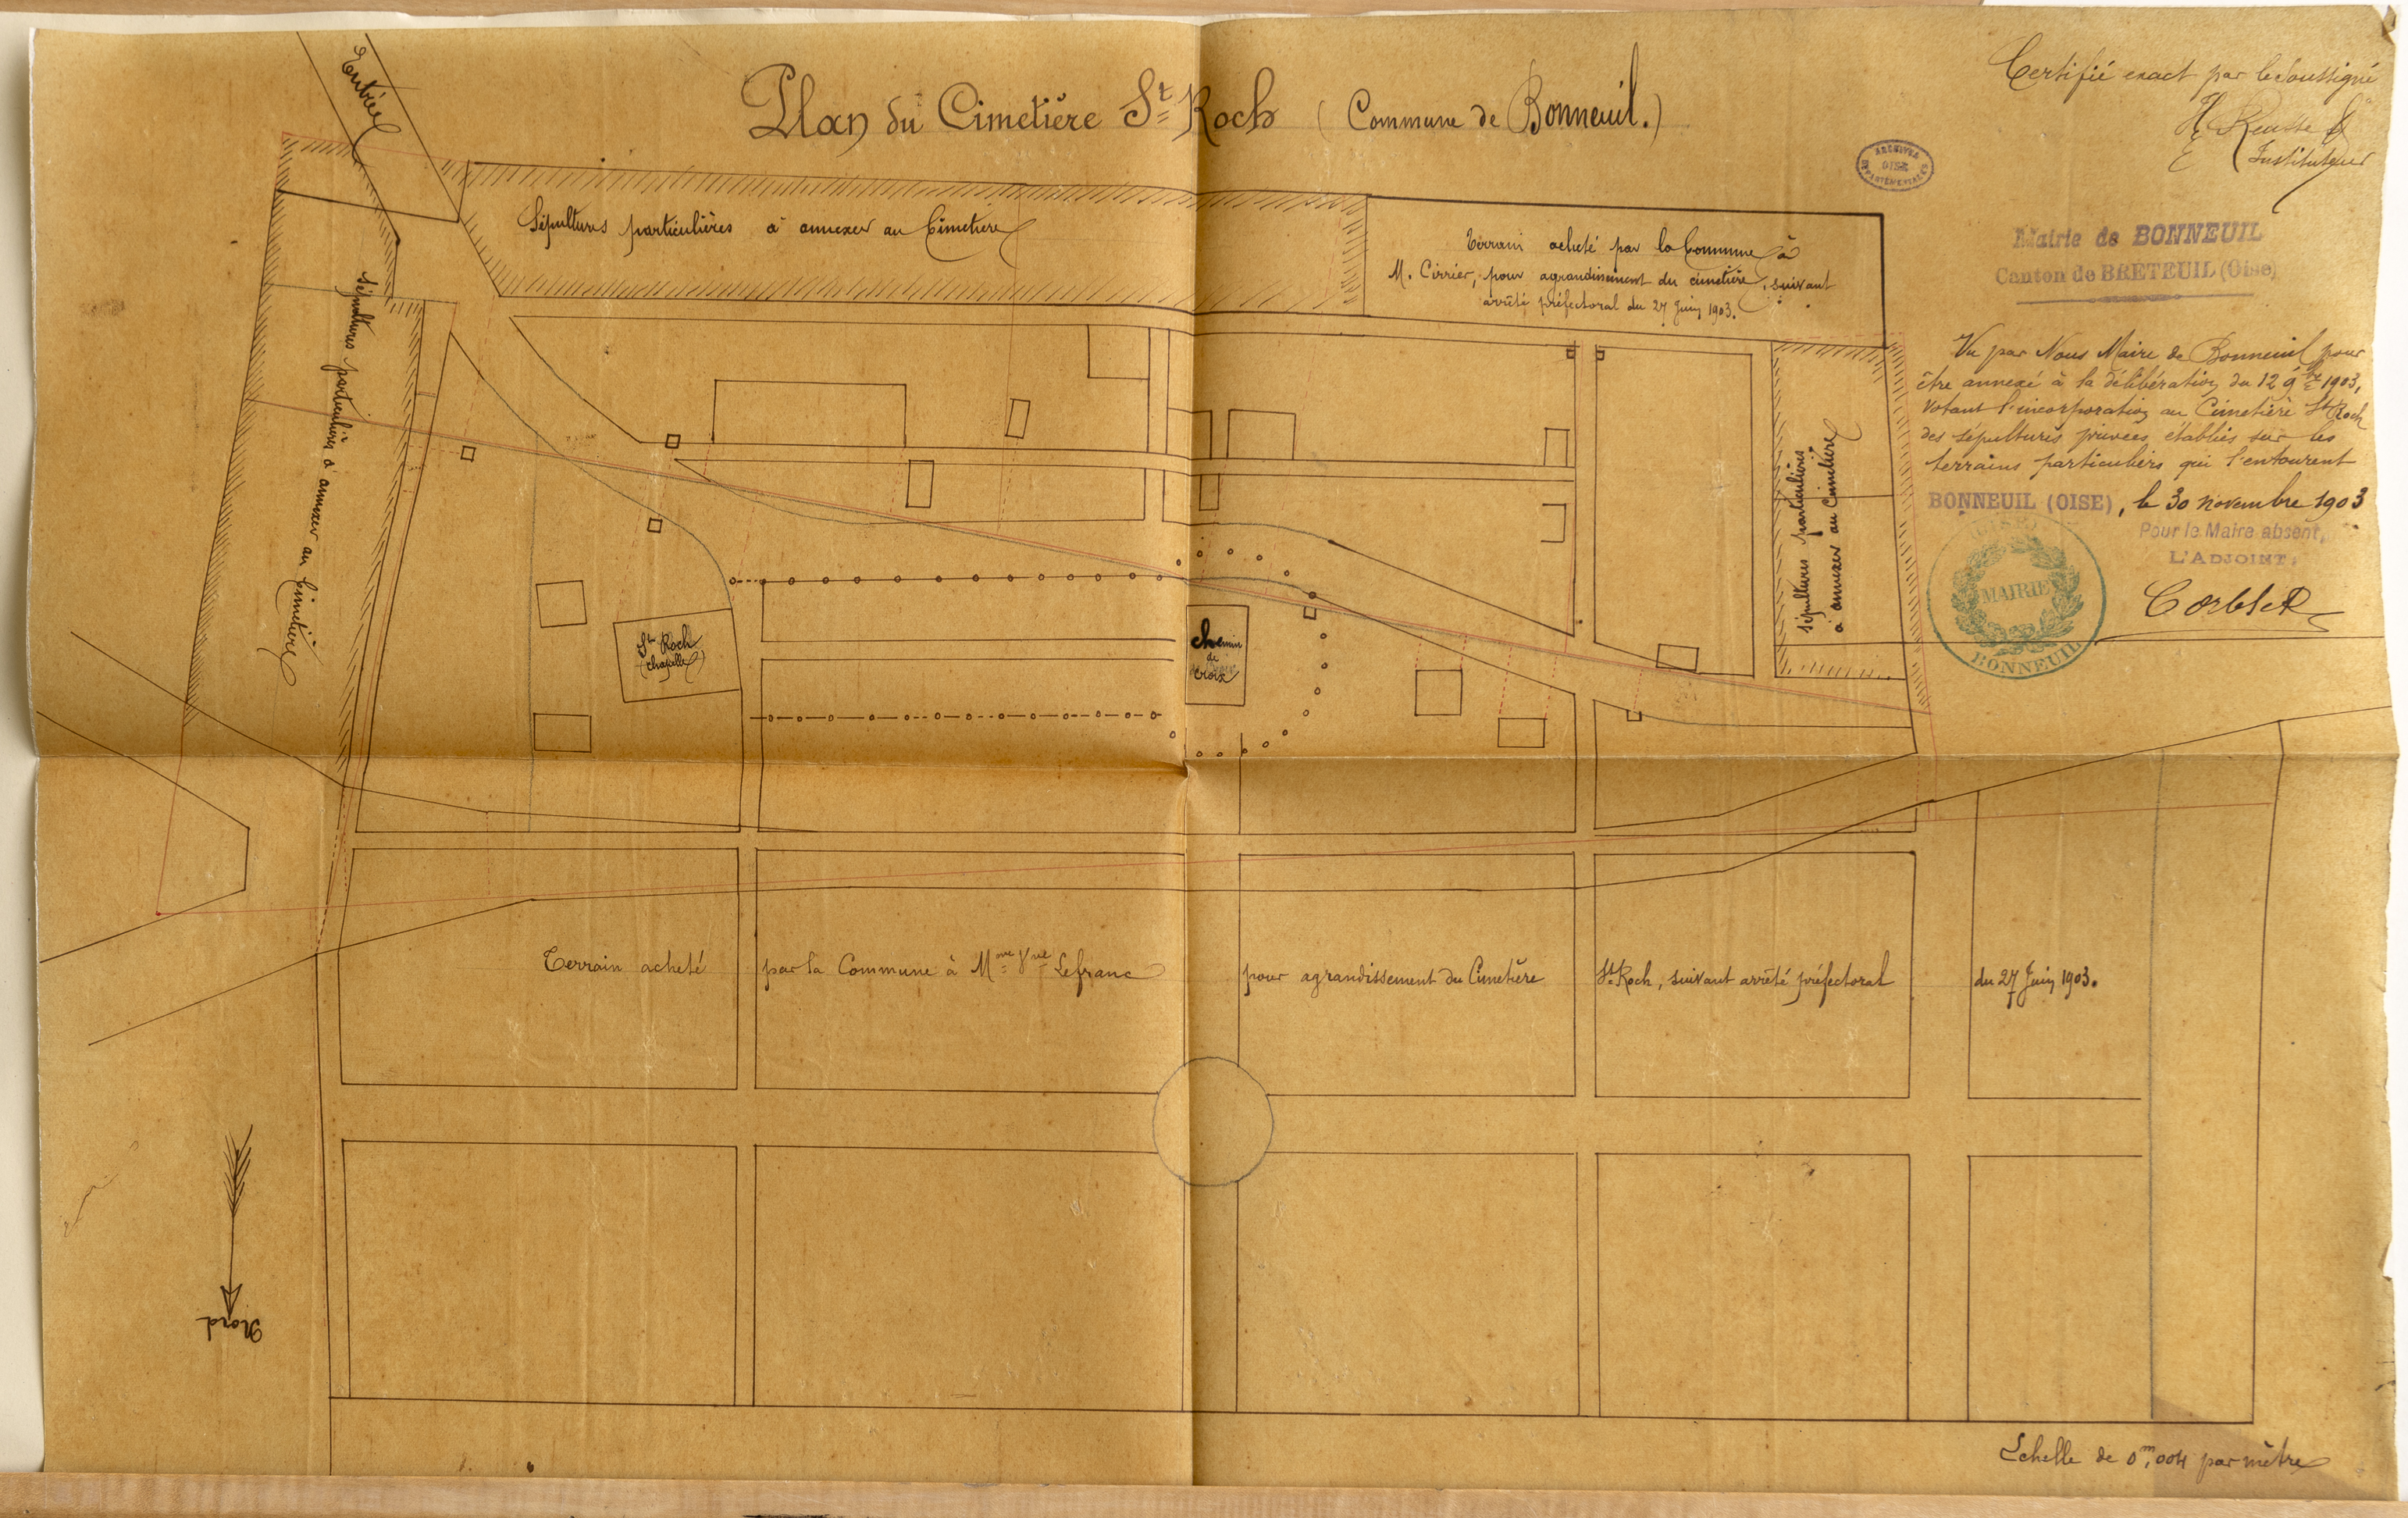 Plan du Cimetière St Roch (Commune de Bonneuil.)
Entrée
Certifié exact par le soussigné
Instituteur
ARCHIVES
OISE
DÉPARTEMENTALES
Mairie de BONNEUIL
Canton de BRETEUIL (Oise)
Vu par Nous Maire de Bonneuil pour
être annexé à la délibération du 12 9bre 1903,
votant l'incorporation au Cimetière St Roch
des sépultures privées établies sur les
terrains particuliers qui l'entourent
BONNEUIL (OISE), le 30 novembre 1903
Pour le Maire absent,
L'ADJOINT,
MAIRIE
BONNEUIL
Sépultures particulières à annexer au Cimetière
Terrain acheté par la Commune à
M. Cirrier, pour agrandissement du cimetière, suivant
arrêté préfectoral du 27 Juin 1903.
Sépultures particulières à annexer au Cimetière
Sépultures particulières
à annexer au Cimetière
St Roch
(chapelle)
Chemin
de
croix
Terrain acheté par la Commune à Mme Vve Lefranc pour agrandissement du Cimetière St Roch, suivant arrêté préfectoral du 27 Juin 1903.
Nord
Echelle de 0m,004 par mètre